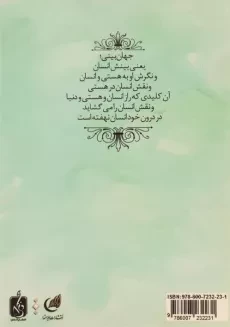 جهان‌بینی؛
یعنی بینش انسان
و نگرش او به هستی و انسان
و نقش انسان در هستی
آن کلیدی که راز انسان و هستی و دنیا
و نقش انسان را می‌گشاید
در درون خود انسان نهفته است
ISBN: 978-600-7232-23-1
9 786007 232231